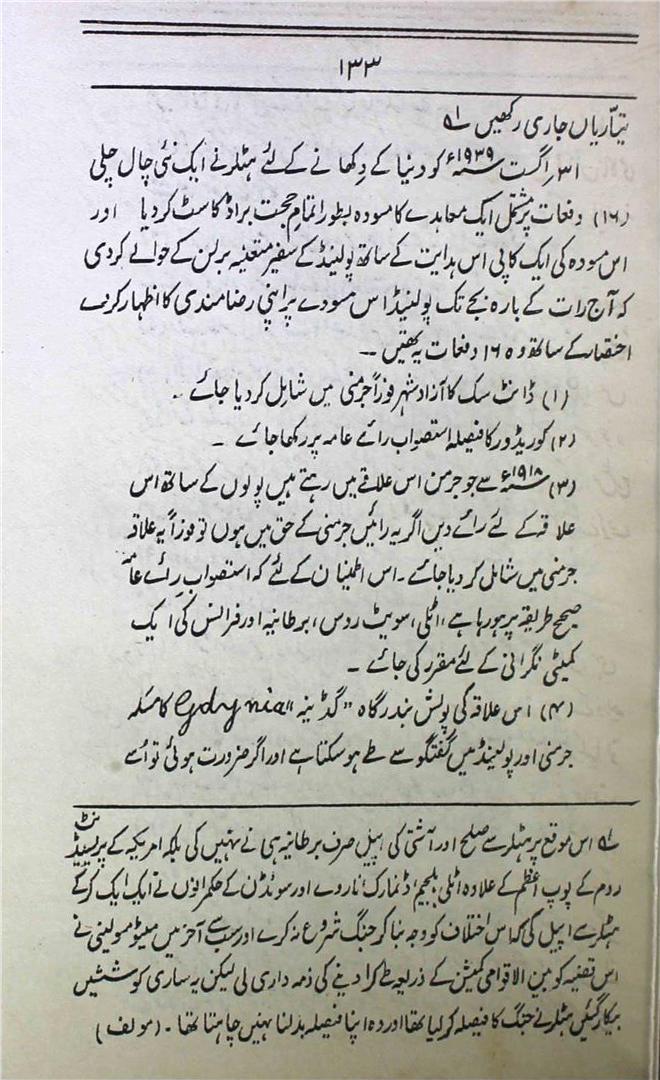 ۱۳۳
تیّاریاں جاری رکھیں ۱؎
۳۱؍اگست ۱۹۳۹ء کو دنیا کے دِکھانے کے لئے ہٹلر نے ایک نئی چال چلی
(۱۶) دفعات پر مشتمل ایک معاہدے کا مسودہ بطور اتمامِ حجت براڈ کاسٹ کر دیا اور
اس مسودہ کی ایک کاپی اس ہدایت کے ساتھ پولینڈ کے سفیر متعینہ برلن کے حوالے کر دی
کہ آج رات کے بارہ بجے تک پولینڈ اس مسودے پر اپنی رضامندی کا اظہار کردے
اختصار کے ساتھ وہ ۱۶ دفعات یہ تھیں ــ
(۱) ڈانٹ سک کا آزاد شہر فوراً جرمنی میں شامِل کر دیا جائے ۔
(۲) کوریڈور کا فیصلہ استصواب رائے عامہ پر رکھا جائے ۔
(۳) ۱۹۱۸ء سے جو جرمن اس علاقے میں رہتے ہیں پولوں کے ساتھ اس
علاقہ کے لئے رائے دیں اگر یہ رائیں جرمنی کے حق میں ہوں تو فوراً یہ علاقہ
جرمنی میں شامل کر دیا جائے ۔ اس اطمینان کے لئے کہ استصواب رائے عامّہ
صحیح طریقہ پر ہو رہا ہے ، اٹلی ، سویٹ روس ، برطانیہ اور فرانس کی ایک
کمیٹی نگرانی کے لئے مقرر کی جائے ۔
(۴) اس علاقہ کی پولش بندرگاہ "گڈینہ" Gdynia کا مسئلہ
جرمنی اور پولینڈ میں گفتگو سے طے ہو سکتا ہے اور اگر ضرورت ہوئی تو اُسے
۱؎ اس موقع پر ہٹلر سے صلح اور آشتی کی اپیل صرف برطانیہ ہی نے نہیں کی بلکہ امریکہ کے پریسیڈنٹ
روم کے پوپ اعظم کے علاوہ اٹلی بلجیم ڈنمارک ناروے اور سوئڈن کے حکمرانوں نے ایک ایک کرکے
ہٹلر سے اپیل کی کہ اس اختلاف کو وجہ بنا کر جنگ شروع نہ کرے اور سب سے آخر میں سینیٹر مسولینی نے
اس قضیہ کو بین الاقوامی کمیشن کے ذریعہ طے کرا دینے کی ذمہ داری لی لیکن یہ ساری کوششیں
بیکار گئیں ہٹلر نے جنگ کا فیصلہ کر لیا تھا اور وہ اپنا فیصلہ بدلنا نہیں چاہتا تھا ۔ (مولف)